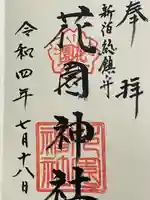 奉拝
新宿総鎮守
花園神社
令和四年七月十八日
花園神社